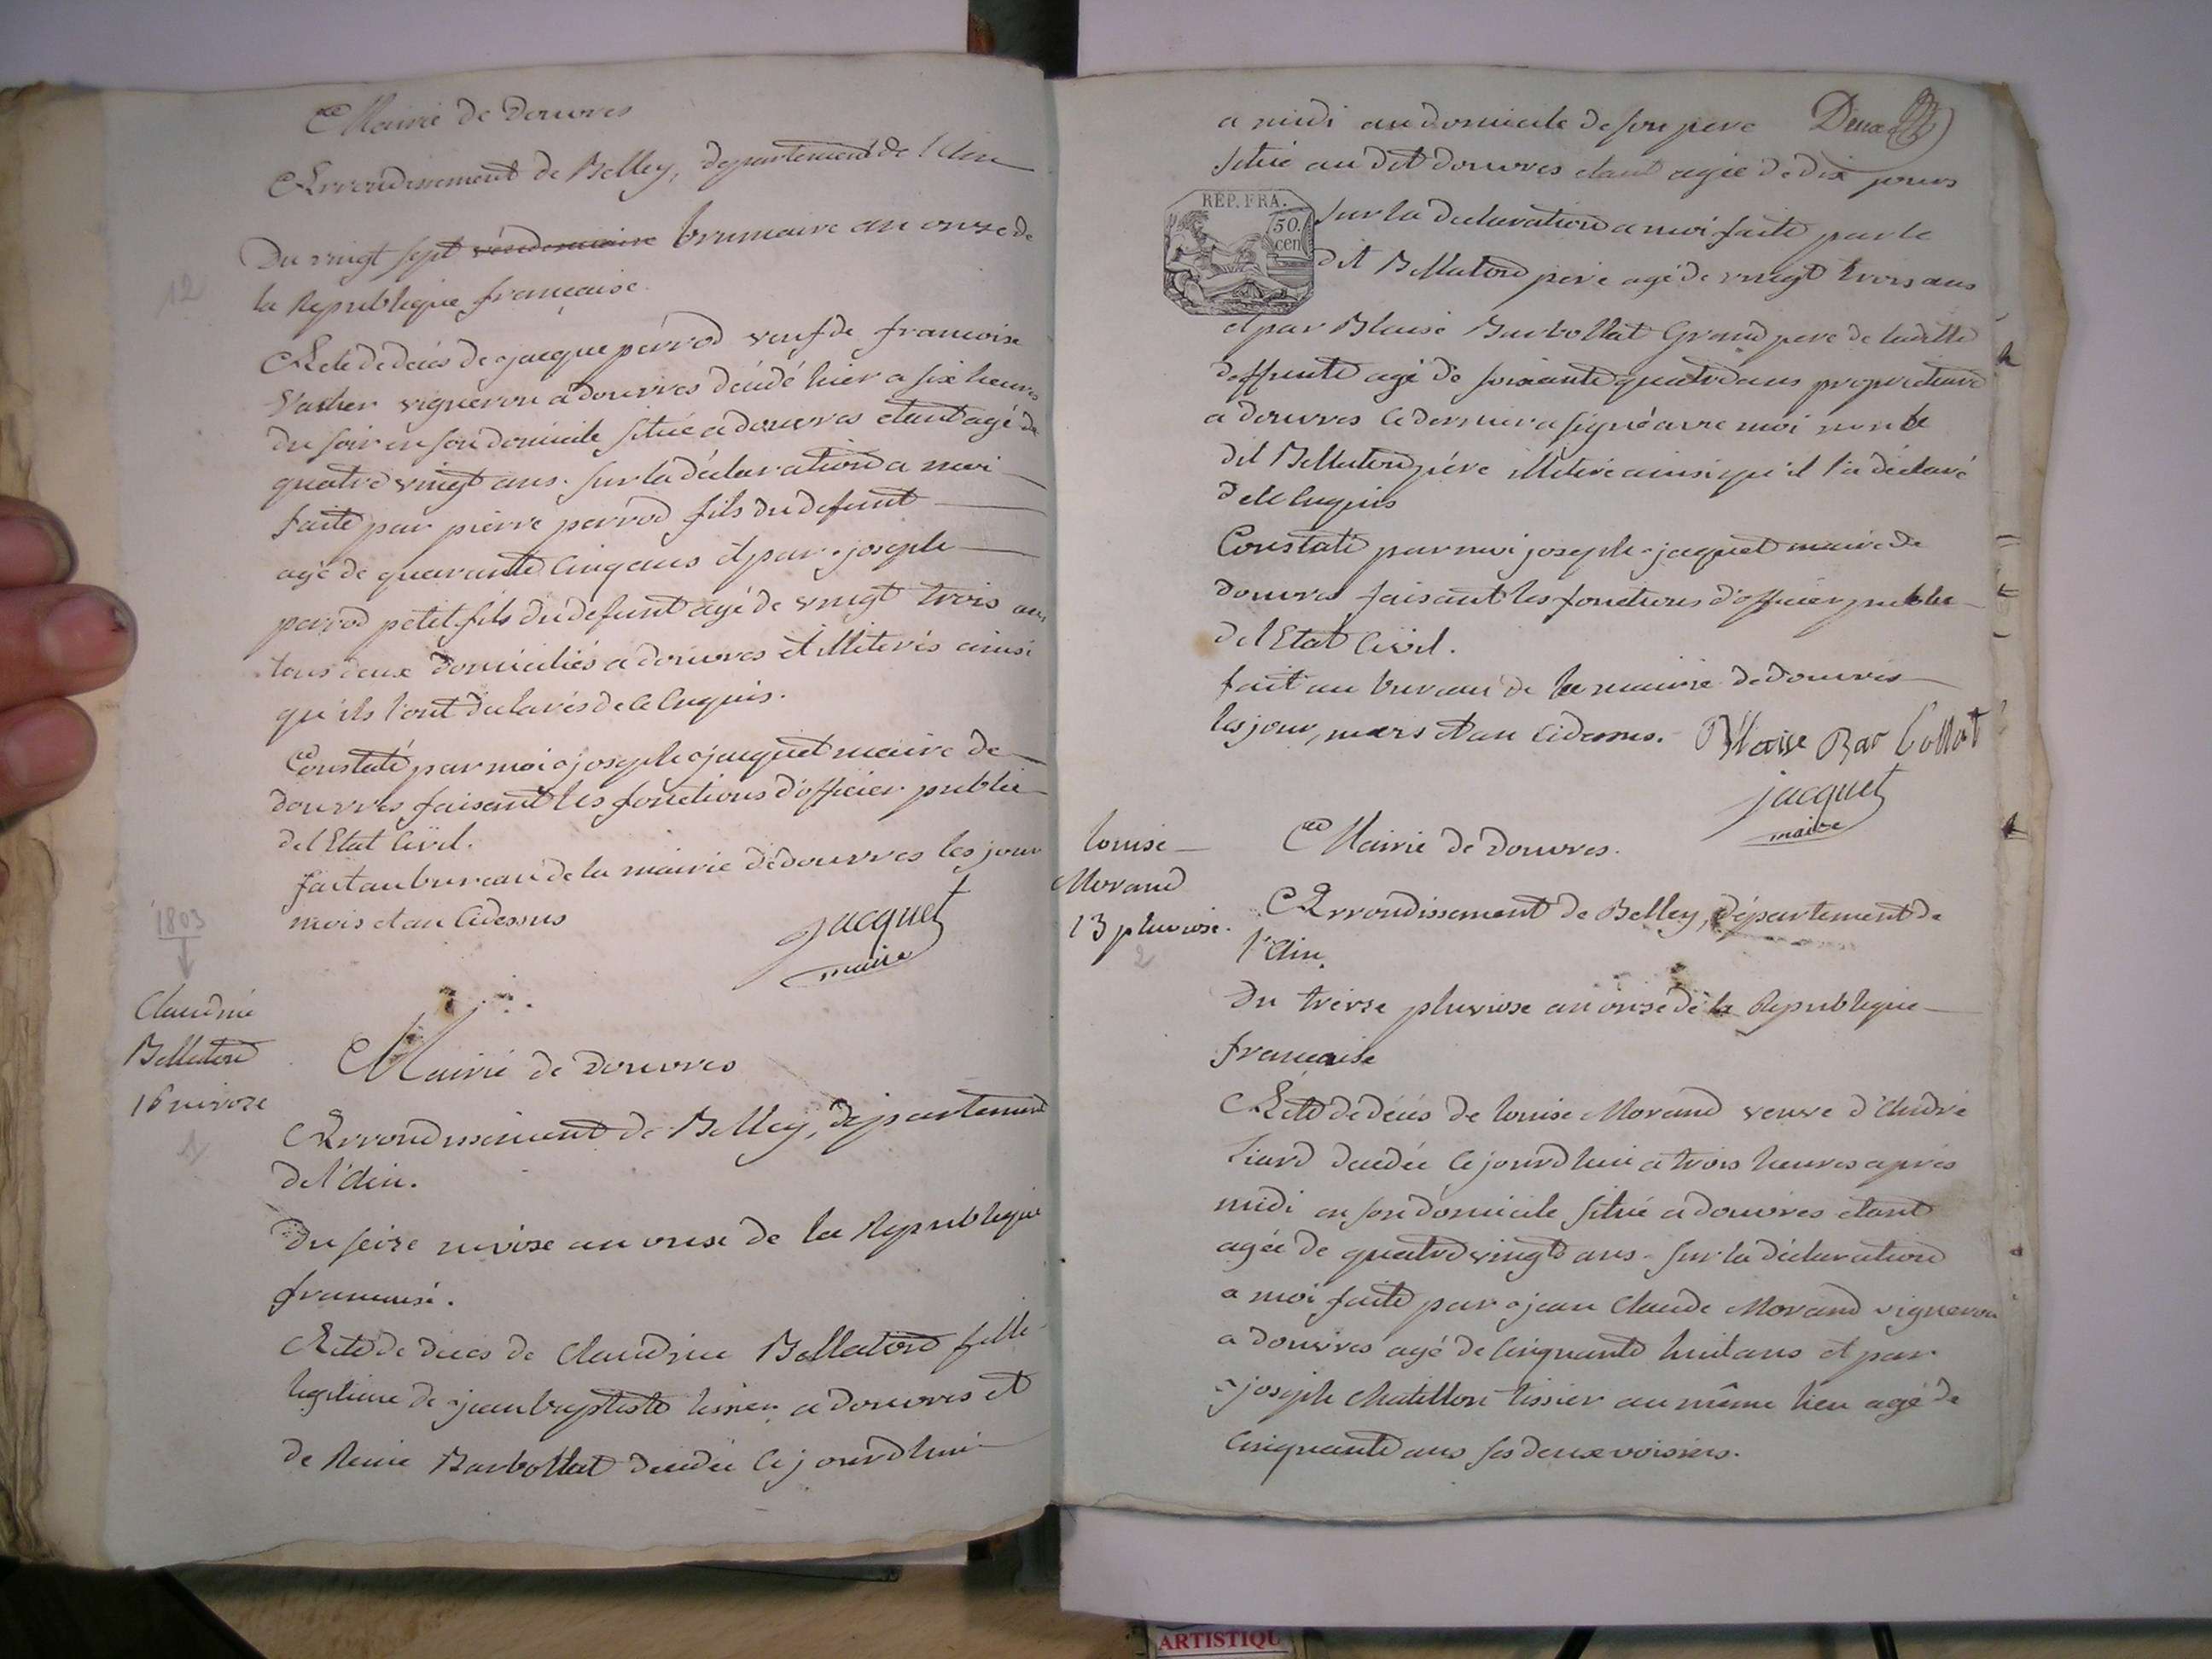 Mairie de Douvres
Arrondissement de Belley, departement de l'Ain
Du vingt sept vendemiaire brumaire an onze de
la Republique française.
12
Acte de décés de jacque perrod veuf de francoise
Vacher vigneron a douvres décédé hier a six heures
du soir en son domicile situé a douvres etant agé de
quatre vingt ans. sur la déclaration a moi
faite par pierre perrod fils du defunt
agé de quarante cinq ans et par joseph
perrod petit fils du defunt agé de vingt trois ans
tous deux domiciliés a douvres et illiterés ainsi
qu'ils l'ont déclarés de ce enquis.
Constaté par moi joseph jacquet maire de
douvres faisant les fonctions d'officier public
de l'Etat Civil.
fait au bureau de la mairie de douvres les jour
mois et an cidessus
jacquet
maire
1803
Claudine
Bellaton
16 nivose
1
Mairie de Douvres
Arrondissement de Belley, departement
de l'Ain.
Du seize nivose an onze de la Republique
francaise.
Acte de décés de Claudine Bellaton fille
legitime de jean baptiste tissier a douvres et
de Reine Barbollat décédée ce jourd'hui
a midi au domicile de son pere
Deux
situé au dit douvres etant agée de dix jours
REP. FRA.
50.
cen
sur la declaration a moi faite par le
dit Bellaton pere agé de vingt trois ans
et par Blaise Barbollat Grand pere de laditte
deffunte agé de soixante quatre ans proprietaire
a douvres ce dernier a signé avec moi non le
dit Bellaton pére illiteré ainsi qu'il l'a déclaré
de ce enquis
Constaté par moi joseph jaquet maire de
douvres faisant les fonctions d'officier public
de l'Etat Civil.
fait au bureau de la mairie de douvres
les jour, mois et an cidessus.
Blaise Bar bollat
jacquet
maire
louise
Morand
13 pluviose.
2
Mairie de Douvres.
Arrondissement de Belley, département de
l'Ain.
Du treize pluviose an onze de la Republique
francaise
Acte de décés de louise Morand veuve d'André
décédée ce jourd'hui a trois heures aprés
midi en son domicile situé a douvres etant
agée de quatre vingts ans. sur la déclaration
a moi faite par jean Claude Morand vigneron
a douvres agé de cinquante huit ans et par
joseph Chatillon tissier au même lieu agé de
cinquante ans ses deux voisins.
ARTISTIQU